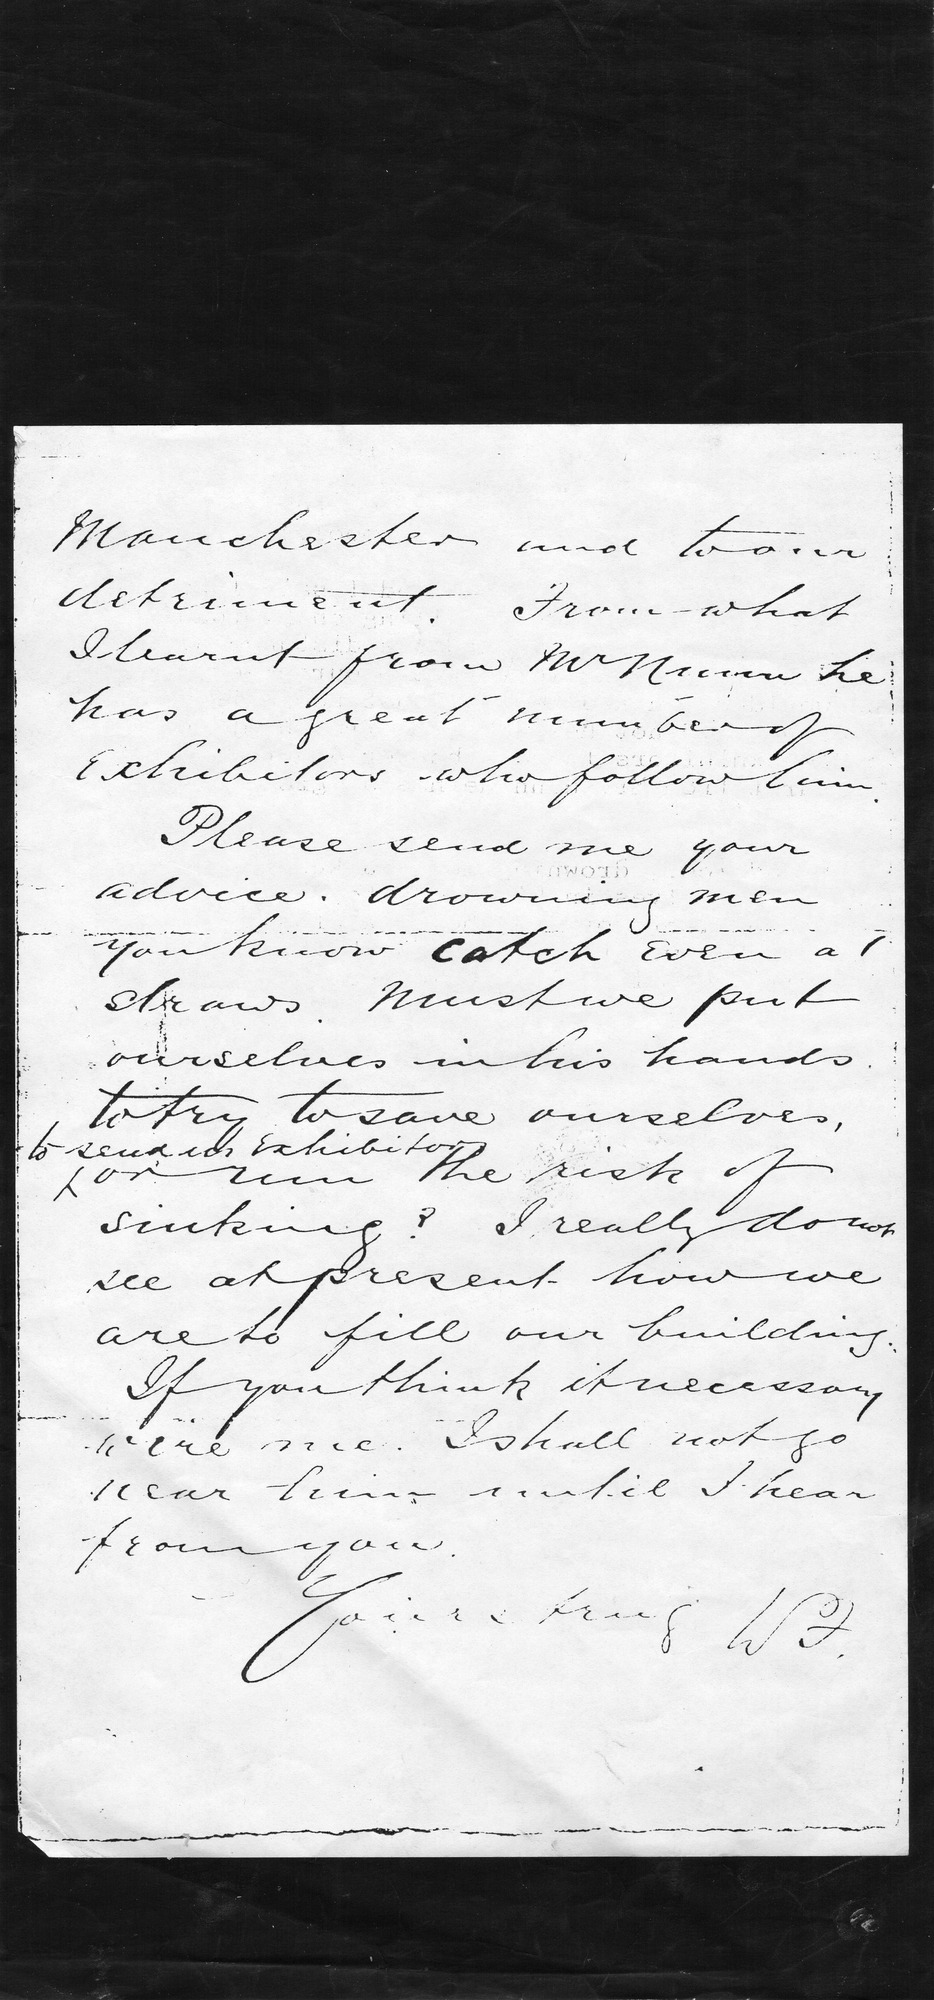 Manchester and to our
detriment. From what
I learnt from Mr Nunn he
has a great number of
Exhibitors who follow him.
Please send me your
advice. drowning men
you know catch even at
straws. Must we put
ourselves in his hands
to try to save ourselves,
to send us Exhibitors
or run the risk of
sinking? I really do not
see at present how we
are to fill our building.
If you think it necessary
wire me. I shall not go
near him until I hear
from you.
Yours truly W F.